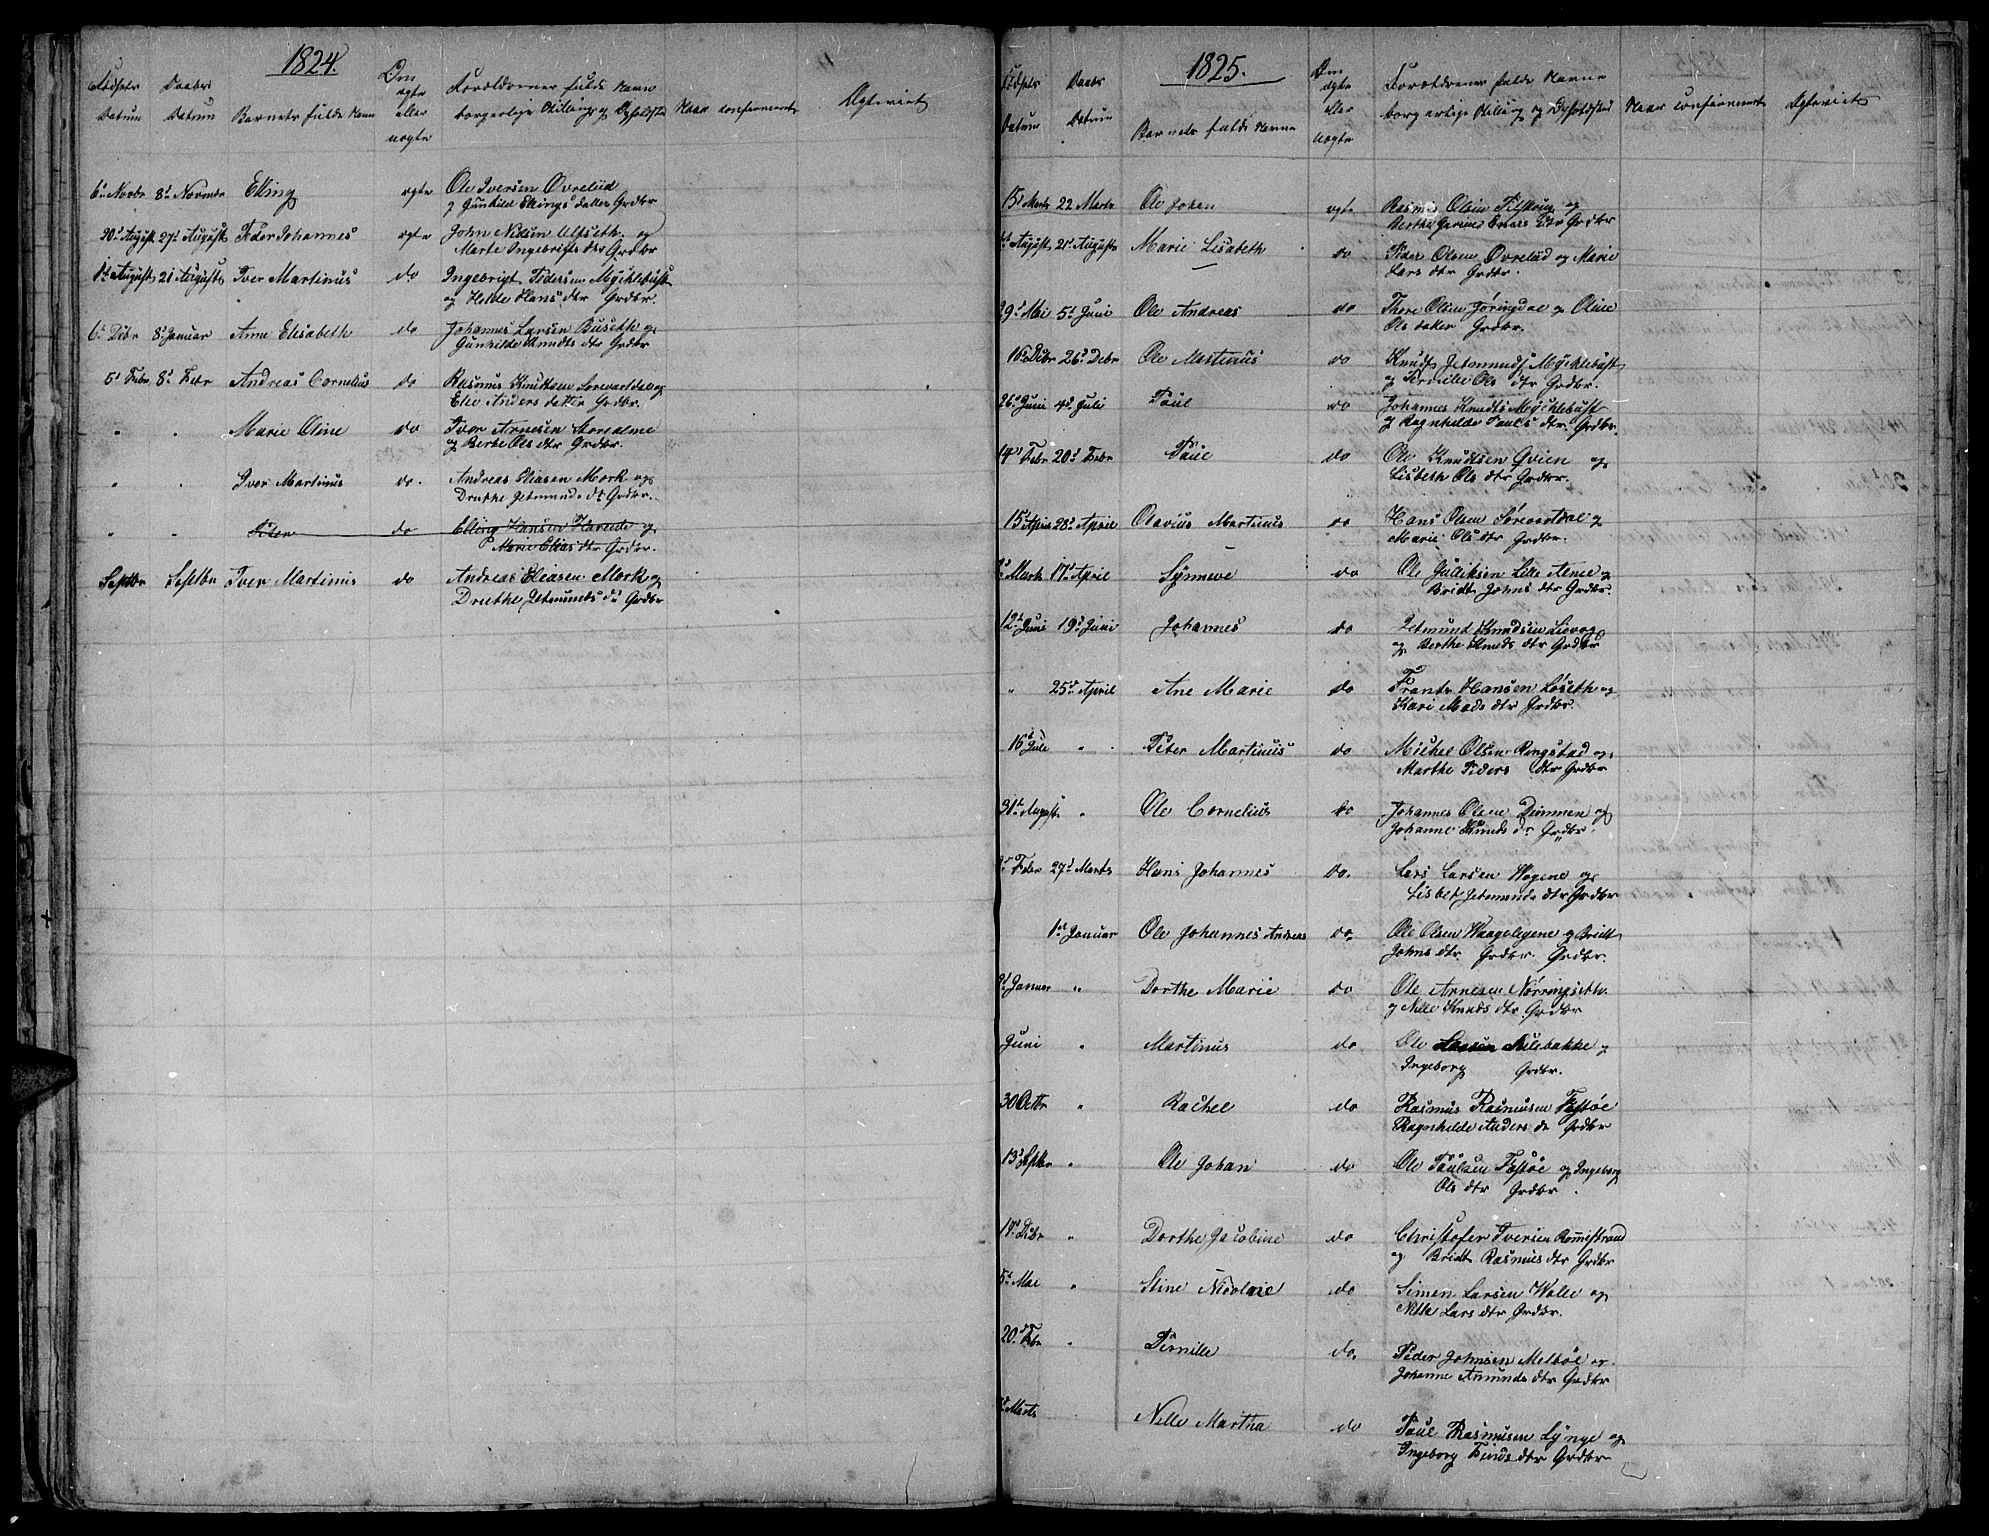 1824.
Fødsels Datum
Daabs Datum
Barnets fulde Navn
Om ægte eller uægte
Forældrenes fulde Navn borgerlige Stilling og Opholdsted
Naar confirmeret
Ægteviet
6d Novbr 8d Novembr Elling ægte Ole Iversen Øvrelid
og Gunhild Ellings datter Grdbr
20d August 27d August Peder Johannes ægte John Nilsen Alfseth og
Marte Ingebrigts dtr Grdbr
1d August 21 August Iver Martinus do Ingebrigt Pedersen Myklebust
og Helde Hans dtr Grdbr.
6d Debr 8d Januar Anne Elisabeth do Johannes Larsen Buseth og
Gunhilde Knudts dtr Grdbr
5d Febr 8d Febr Andreas Cornelius do Rasmus Knudtsen
Else Anders datter Grdbr.
" " Marie Oline do Iver Arnesen Storealme
og Berte Ols dtr Grdbr.
" " Iver Martinus do. Andreas Eliasen Mork og
Druthe Jetmunds dr Grdbr.
" " Peder do Elling Hansen og
Marie Elias dtr Grdbr.
Septbr Septbr Iver Martinus do Andreas Eliasen Mork og
Druthe Jetmunds dr Grdbr
1825.
Fødsels Datum
Daabs Datum
Barnets fulde Navne
Om ægte eller uægte
Forældrenes fulde Navne borgerlige Stilling og Opholdsted
Naar Confirmeret
Ægteviet
15d Marts 22 Marts Ole Johan ægte Rasmus Olsen og
Berthe dtr Grdbr
August 21d August Marie Lisabeth do Peder Olsen Øvrelid og Marie
Lars dtr Grdbr.
29d Mai 5d Juni Ole Andreas do Thore Olsen Jøringdal og Oline
Ols datter Grdbr.
16d Debr 26d Debr Ole Martinus do Knudt Jetmunds Myklebust
og Pernille Ols dtr Grdbr.
26d Juni 4d Juli Paul do Johannes Knudts Myklebust
og Ragnhilde Pauls dtr. Grdbr.
14d Febr 20d Febr Paul do Ole Knudtsen Qvien og
Lisbeth Ols dtr Grdbr.
15 April 28d April Olavius Martinus do Hans Olsen og
Marie Ols dtr Grdbr.
Marts 17d April Synneve do Ole Gulliksen Lille Alme og
Bridt Johns dtr Grdbr.
12d Juni 19d Juni Johannes do Jetmund Knudsen
og Berthe Knuds dtr Grdbr
" 25d April Ane Marie do Frants Hansen Løseth og
Kari Mads dtr Grdbr.
16d Juli " Peter Martinus do Michel Olsen Ringstad og
Marthe Peders dtr Grdbr
31d August " Ole Cornelius do Johannes Olsen Dimmen og
Johanne Knuds dr Grdbr.
Febr 27d Marts Hans Johannes do. Lars Larsen Wagene og
Lisbet Jetmunds dtr Grdbr
1d Januar Ole Johannes Andreas do. Ole Olsen og Bridt
Johns dtr. Grdbr. Grdbr.
Januar " Dorthe Marie do Ole Arnesen Nørringseth
og Nille Knuds dtr Grdbr
Juni " Martinus do Ole Larsen og
Ingeborg Grdbr.
30 Octbr " Rachel do Rasmus Rasmusen Festøe
Ragnhilde Anders dr Grdbr
13d Septbr " Ole Johan do Ole Paulsen Festøe og Ingeborg
Ols dtr Grdbr.
19d Debr " Dorthe Jacobine do Christofer Iversen Rønnestrand
og Bridt Rasmus dtr Grdbr
5d Mai " Stine Nicolaie do Simen Larsen Walle og
Nille Lars dtr Grdbr.
20d Febr " Pernille do. Peder Johnsen Melbøe og
Johanne Amunds dtr Grdbr
Marts Nille Martha do Paul Rasmusen Lynge og
Ingeborg dtr Grdbr